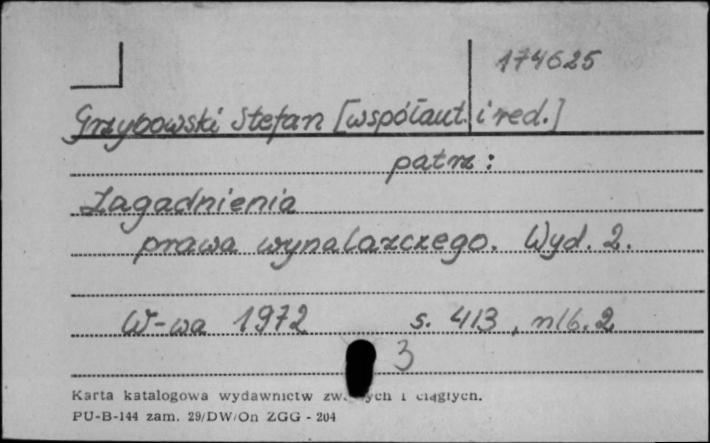 174625
Grzybowski Stefan [współaut. i red.]
patrz:
Zagadnienia
prawa wynalazczego. Wyd. 2.
W-wa 1972 s. 413, nlb. 2
3
Karta katalogowa wydawnictw i ciągłych.
PU-B-144 zam. 29/DW/On ZGG - 204